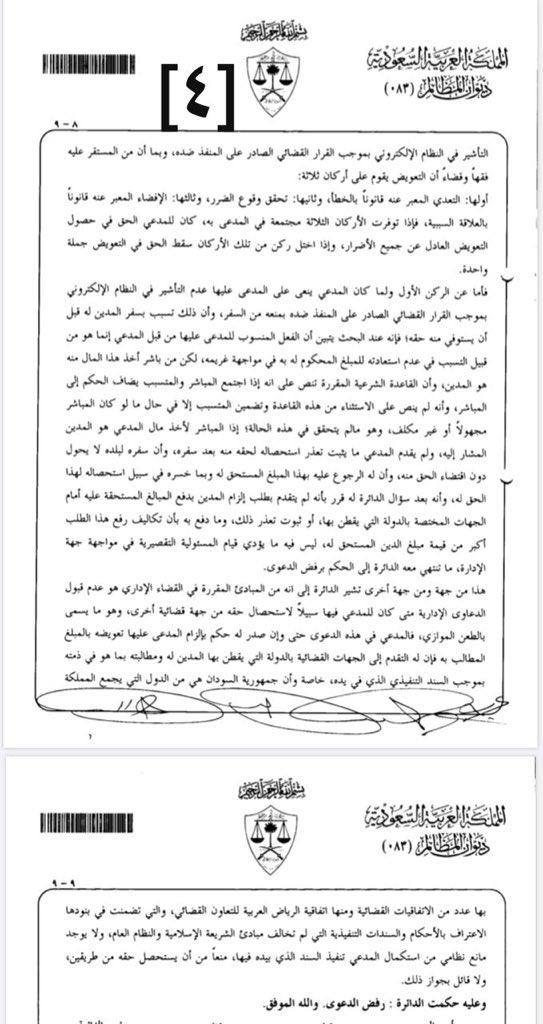 بسم الله الرحمن الرحيم
المملكة العربية السعودية
ديوان المظالم (٠٨٣)
[٤]
٨ - ٩
التأشير في النظام الإلكتروني بموجب القرار القضائي الصادر على المنفذ ضده، وبما أن من المستقر عليه
فقهاً وقضاءً أن التعويض يقوم على أركان ثلاثة:
أولها: التعدي المعبر عنه قانوناً بالخطأ، وثانيها: تحقق وقوع الضرر، وثالثها: الإفضاء المعبر عنه قانوناً
بالعلاقة السببية، فإذا توفرت الأركان الثلاثة مجتمعة في المدعى به، كان للمدعي الحق في حصول
التعويض العادل عن جميع الأضرار، وإذا اختل ركن من تلك الأركان سقط الحق في التعويض جملة
واحدة.
فأما عن الركن الأول ولما كان المدعي ينعى على المدعى عليها عدم التأشير في النظام الإلكتروني
بموجب القرار القضائي الصادر على المنفذ ضده بمنعه من السفر، وأن ذلك تسبب بسفر المدين له قبل
أن يستوفي منه حقه؛ فإنه عند البحث يتبين أن الفعل المنسوب للمدعى عليها من قبل المدعي إنما هو من
قبيل التسبب في عدم استعادته للمبلغ المحكوم له به في مواجهة غريمه، لكن من باشر أخذ هذا المال منه
هو المدين، وأن القاعدة الشرعية المقررة تنص على انه إذا اجتمع المباشر والمتسبب يضاف الحكم إلى
المباشر، وأنه لم ينص على الاستثناء من هذه القاعدة وتضمين المتسبب إلا في حال ما لو كان المباشر
مجهولاً أو غير مكلف، وهو مالم يتحقق في هذه الحالة؛ إذا المباشر لأخذ مال المدعي هو المدين
المشار إليه، ولم يقدم المدعي ما يثبت تعذر استحصاله لحقه منه بعد سفره، وأن سفره لبلده لا يحول
دون اقتضاء الحق منه، وأن له الرجوع عليه بهذا المبلغ المستحق له وبما خسره في سبيل استحصاله لهذا
الحق له، وأنه بعد سؤال الدائرة له قرر بأنه لم يتقدم بطلب إلزام المدين بدفع المبالغ المستحقة عليه أمام
الجهات المختصة بالدولة التي يقطن بها، أو ثبوت تعذر ذلك، وما دفع به بأن تكاليف رفع هذا الطلب
أكبر من قيمة مبلغ الدين المستحق له، ليس فيه ما يؤدي قيام المسئولية التقصيرية في مواجهة جهة
الإدارة، ما تنتهي معه الدائرة إلى الحكم برفض الدعوى.
هذا من جهة ومن جهة أخرى تشير الدائرة إلى انه من المبادئ المقررة في القضاء الإداري هو عدم قبول
الدعاوى الإدارية متى كان للمدعي فيها سبيلاً لاستحصال حقه من جهة قضائية أخرى، وهو ما يسمى
بالطعن الموازي، فالمدعي في هذه الدعوى حتى وإن صدر له حكم بإلزام المدعى عليها تعويضه بالمبلغ
المطالب به فإن له التقدم إلى الجهات القضائية بالدولة التي يقطن بها المدين له ومطالبته بما هو في ذمته
بموجب السند التنفيذي الذي في يده، خاصة وأن جمهورية السودان هي من الدول التي يجمع المملكة
بسم الله الرحمن الرحيم
المملكة العربية السعودية
ديوان المظالم (٠٨٣)
٩ - ٩
بها عدد من الاتفاقيات القضائية ومنها اتفاقية الرياض العربية للتعاون القضائي، والتي تضمنت في بنودها
الاعتراف بالأحكام والسندات التنفيذية التي لم تخالف مبادئ الشريعة الإسلامية والنظام العام، ولا يوجد
مانع نظامي من استكمال المدعي تنفيذ السند الذي بيده فيها، منعاً من أن يستحصل حقه من طريقين،
ولا قائل بجواز ذلك.
وعليه حكمت الدائرة : رفض الدعوى. والله الموفق.